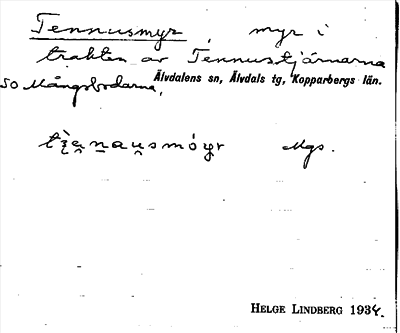 Tennusmyr, myr i
trakten av Tennustjärnarna
SO Mångsbodarna, Älvdalens sn, Älvdals tg, Kopparbergs län.
Mgs.
HELGE LINDBERG 1934.